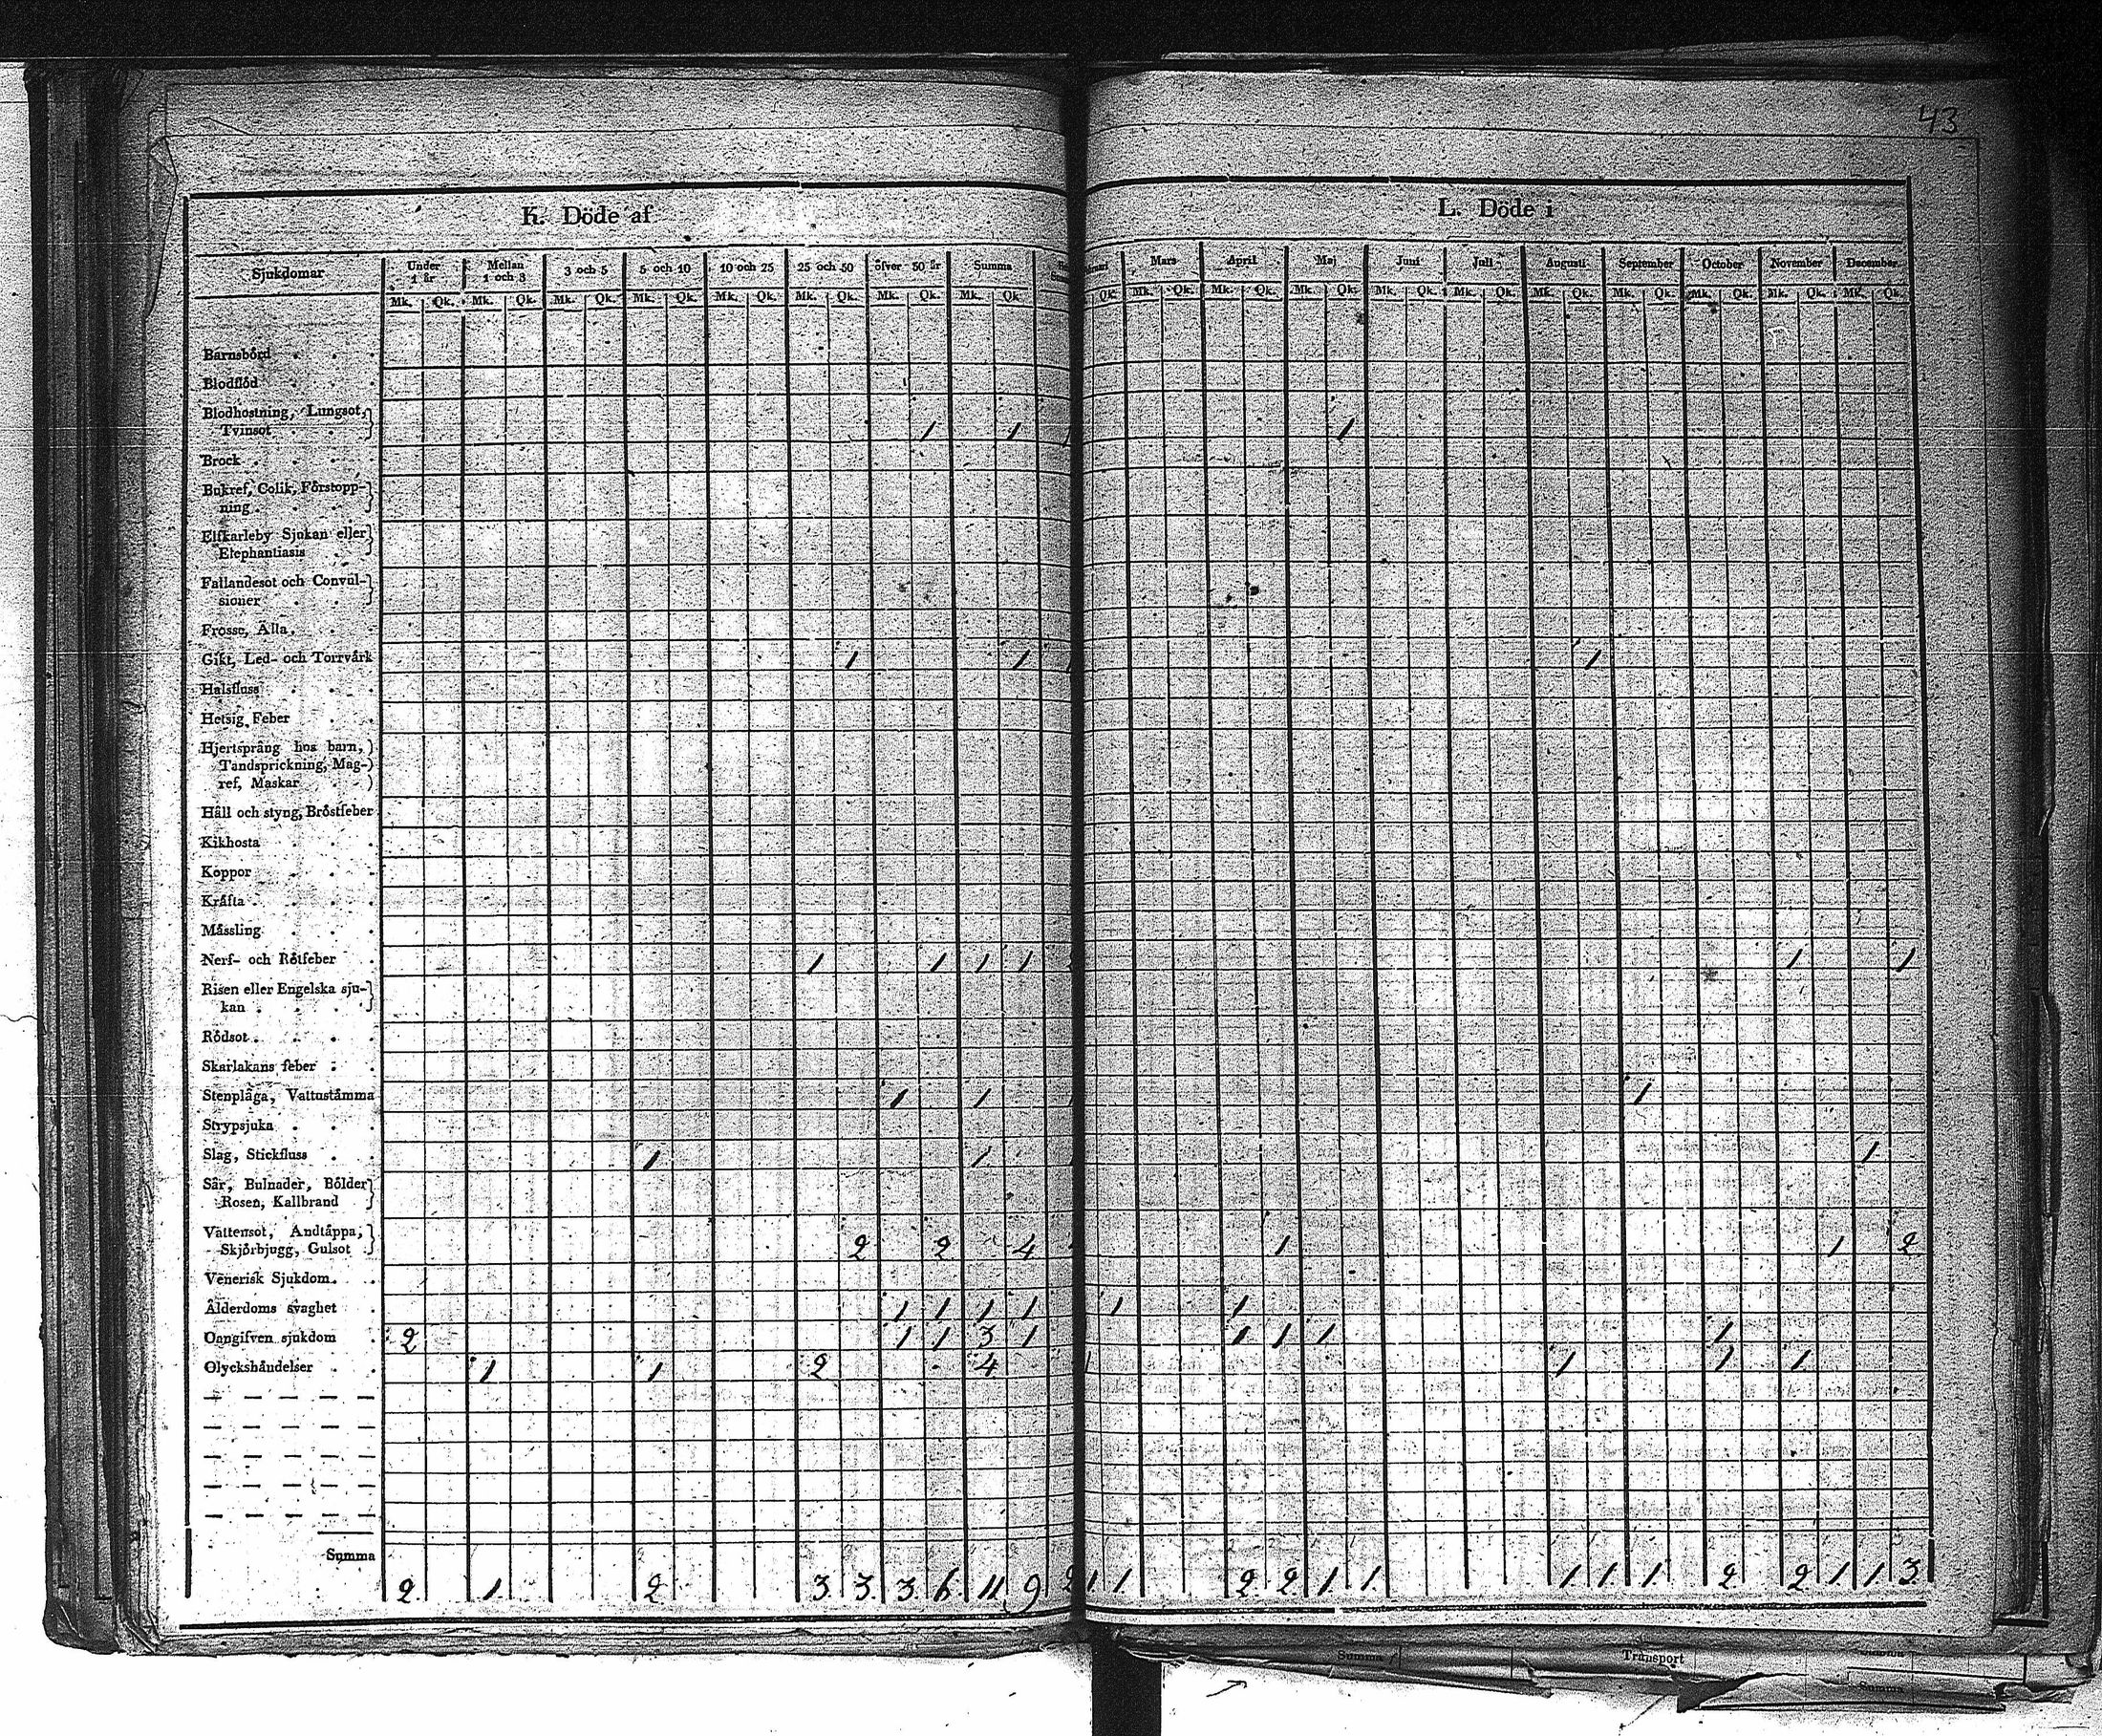 43
K. Döde af
L. Döde i
Sjukdomar Under 1 år Mellan 1 och 3 3 och 5 5 och 10 10 och 25 25 och 50 öfver 50 år Summa
Mars April Maj Juni Juli Augusti September October November December
Mk. Qk. Mk. Qk. Mk. Qk. Mk. Qk. Mk. Qk. Mk. Qk. Mk. Qk. Mk. Qk.
Qk. Mk. Qk. Mk. Qk. Mk. Qk. Mk. Qk. Mk. Qk. Mk. Qk. Mk. Qk. Mk. Qk. Mk. Qk. Mk. Qk.
Barnsbörd
Blodflöd
Blodhostning, Lungsot,
Tvinsot 1 1 1
Brock
Bukref, Colik, Förstopp-
ning
Elfkarleby Sjukan eller
Elephantiasis
Fallandesot och Convul-
sioner
Frossa, Älta
Gikt, Led- och Torrvärk 1 1 1
Halsfluss
Hetsig Feber
Hjertsprång hos barn,
Tandsprickning, Mag-
ref, Maskar
Håll och styng, Bröstfeber
Kikhosta
Koppor
Kräfta
Mässling
Nerf- och Rötfeber 1 1 1 1 1 1
Risen eller Engelska sju-
kan
Rödsot
Skarlakans feber
Stenplåga, Vattustämma 1 1 1
Strypsjuka
Slag, Stickfluss 1 1 1
Sår, Bulnader, Bölder
Rosen, Kallbrand
Vattensot, Andtäppa,
Skjörbjugg, Gulsot 2 2 4 1 1 2
Venerisk Sjukdom
Ålderdoms svaghet 1 1 1 1 1 1
Oangifven sjukdom 2 1 1 3 1 1 1 1 1
Olyckshändelser 1 1 2 4 1 1 1 1
Summa
2 1 2 3 3 3 6 11 9 2 1 1 2 2 1 1 1 1 1 2 2 1 1 3
Summa Transport
Summa